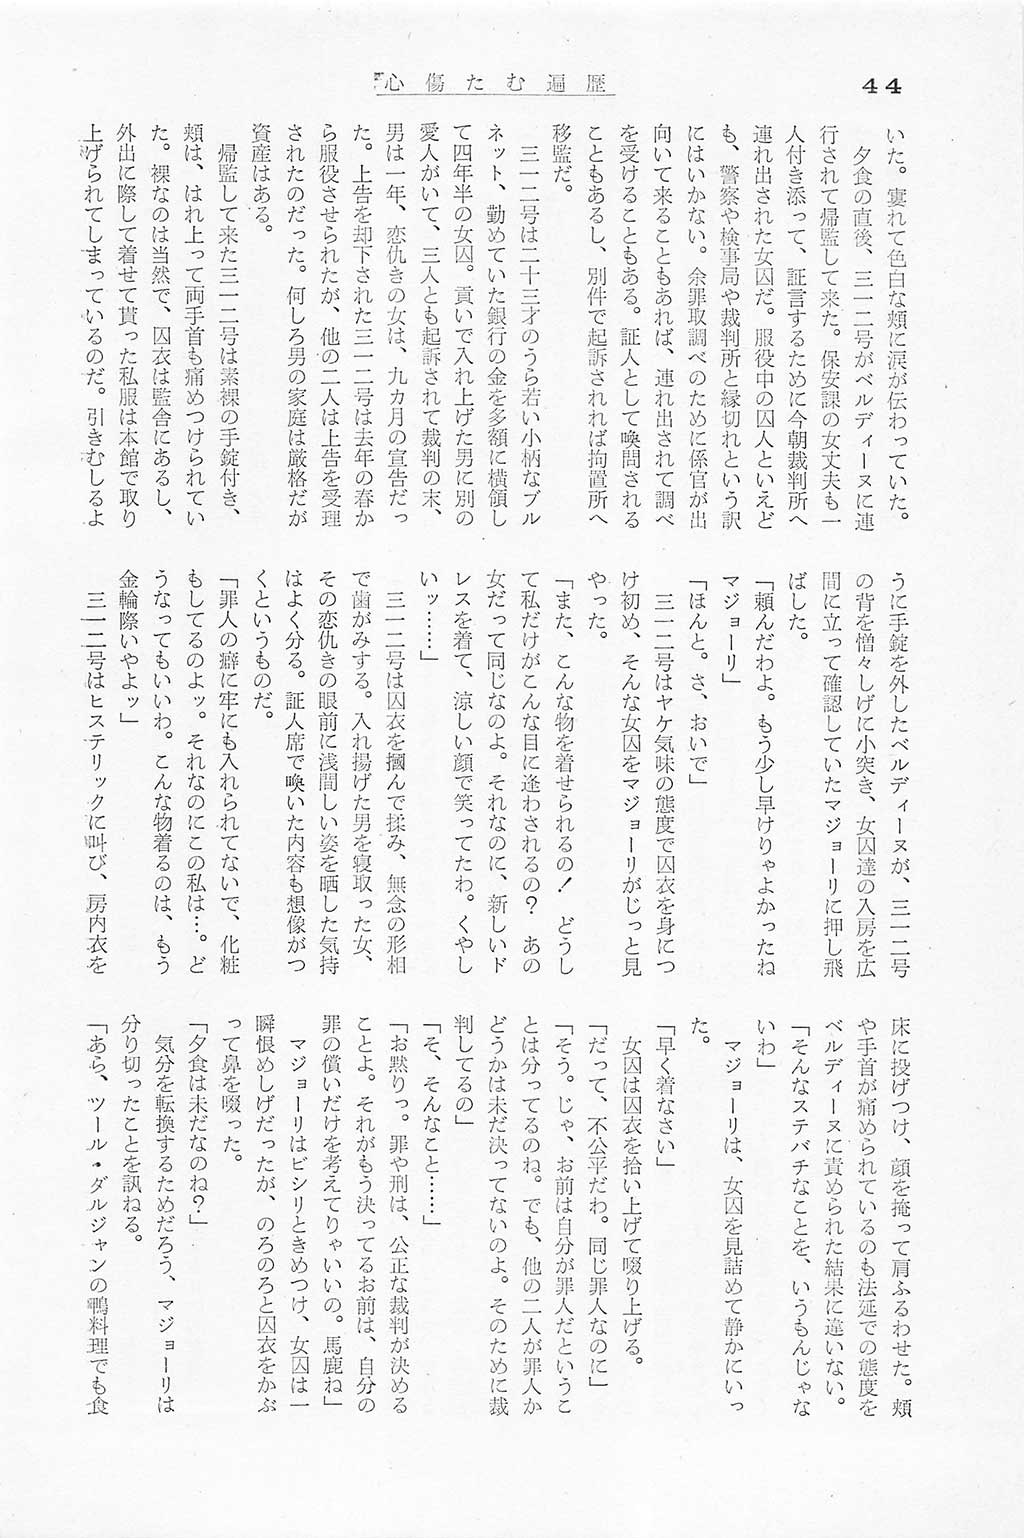 44
心傷たむ遍歴
いた。窶れて色白な頬に涙が伝わっていた。
　夕食の直後、三一二号がベルディーヌに連
行されて帰監して来た。保安課の女丈夫も一
人付き添って、証言するために今朝裁判所へ
連れ出された女囚だ。服役中の囚人といえど
も、警察や検事局や裁判所と縁切れという訳
にはいかない。余罪取調べのために係官が出
向いて来ることもあれば、連れ出されて調べ
を受けることもある。証人として喚問される
こともあるし、別件で起訴されれば拘置所へ
移監だ。
　三一二号は二十三才のうら若い小柄なブル
ネット、勤めていた銀行の金を多額に横領し
て四年半の女囚。貢いで入れ上げた男に別の
愛人がいて、三人とも起訴されて裁判の末、
男は一年、恋仇きの女は、九カ月の宣告だっ
た。上告を却下された三一二号は去年の春か
ら服役させられたが、他の二人は上告を受理
されたのだった。何しろ男の家庭は厳格だが
資産はある。
　帰監して来た三一二号は素裸の手錠付き、
頬は、はれ上って両手首も痛めつけられてい
た。裸なのは当然で、囚衣は監舎にあるし、
外出に際して着せて貰った私服は本館で取り
上げられてしまっているのだ。引きむしるよ
うに手錠を外したベルディーヌが、三一二号
の背を憎々しげに小突き、女囚達の入房を広
間に立って確認していたマジョーリに押し飛
ばした。
「頼んだわよ。もう少し早けりゃよかったね
マジョーリ」
「ほんと。さ、おいで」
　三一二号はヤケ気味の態度で囚衣を身につ
け初め、そんな女囚をマジョーリがじっと見
やった。
「また、こんな物を着せられるの！　どうし
て私だけがこんな目に逢わされるの？　あの
女だって同じなのよ。それなのに、新しいド
レスを着て、涼しい顔で笑ってたわ。くやし
いッ……」
　三一二号は囚衣を摑んで揉み、無念の形相
で歯がみする。入れ揚げた男を寝取った女、
その恋仇きの眼前に浅間しい姿を晒した気持
はよく分る。証人席で喚いた内容も想像がつ
くというものだ。
「罪人の癖に牢にも入れられてないで、化粧
もしてるのよッ。それなのにこの私は…。ど
うなってもいいわ。こんな物着るのは、もう
金輪際いやよッ」
　三一二号はヒステリックに叫び、房内衣を
床に投げつけ、顔を掩って肩ふるわせた。頬
や手首が痛められているのも法延での態度を
ベルディーヌに責められた結果に違いない。
「そんなステバチなことを、いうもんじゃな
いわ」
　マジョーリは、女囚を見詰めて静かにいっ
た。
「早く着なさい」
　女囚は囚衣を拾い上げて啜り上げる。
「だって、不公平だわ。同じ罪人なのに」
「そう。じゃ、お前は自分が罪人だというこ
とは分ってるのね。でも、他の二人が罪人か
どうかは未だ決ってないのよ。そのために裁
判してるの」
「そ、そんなこと……」
「お黙りっ。罪や刑は、公正な裁判が決める
ことよ。それがもう決ってるお前は、自分の
罪の償いだけを考えてりゃいいの。馬鹿ね」
　マジョーリはビシリときめつけ、女囚は一
瞬恨めしげだったが、のろのろと囚衣をかぶ
って鼻を啜った。
「夕食は未だなのね？」
　気分を転換するためだろう、マジョーリは
分り切ったことを訊ねる。
「あら、ツール・ダルジャンの鴨料理でも食